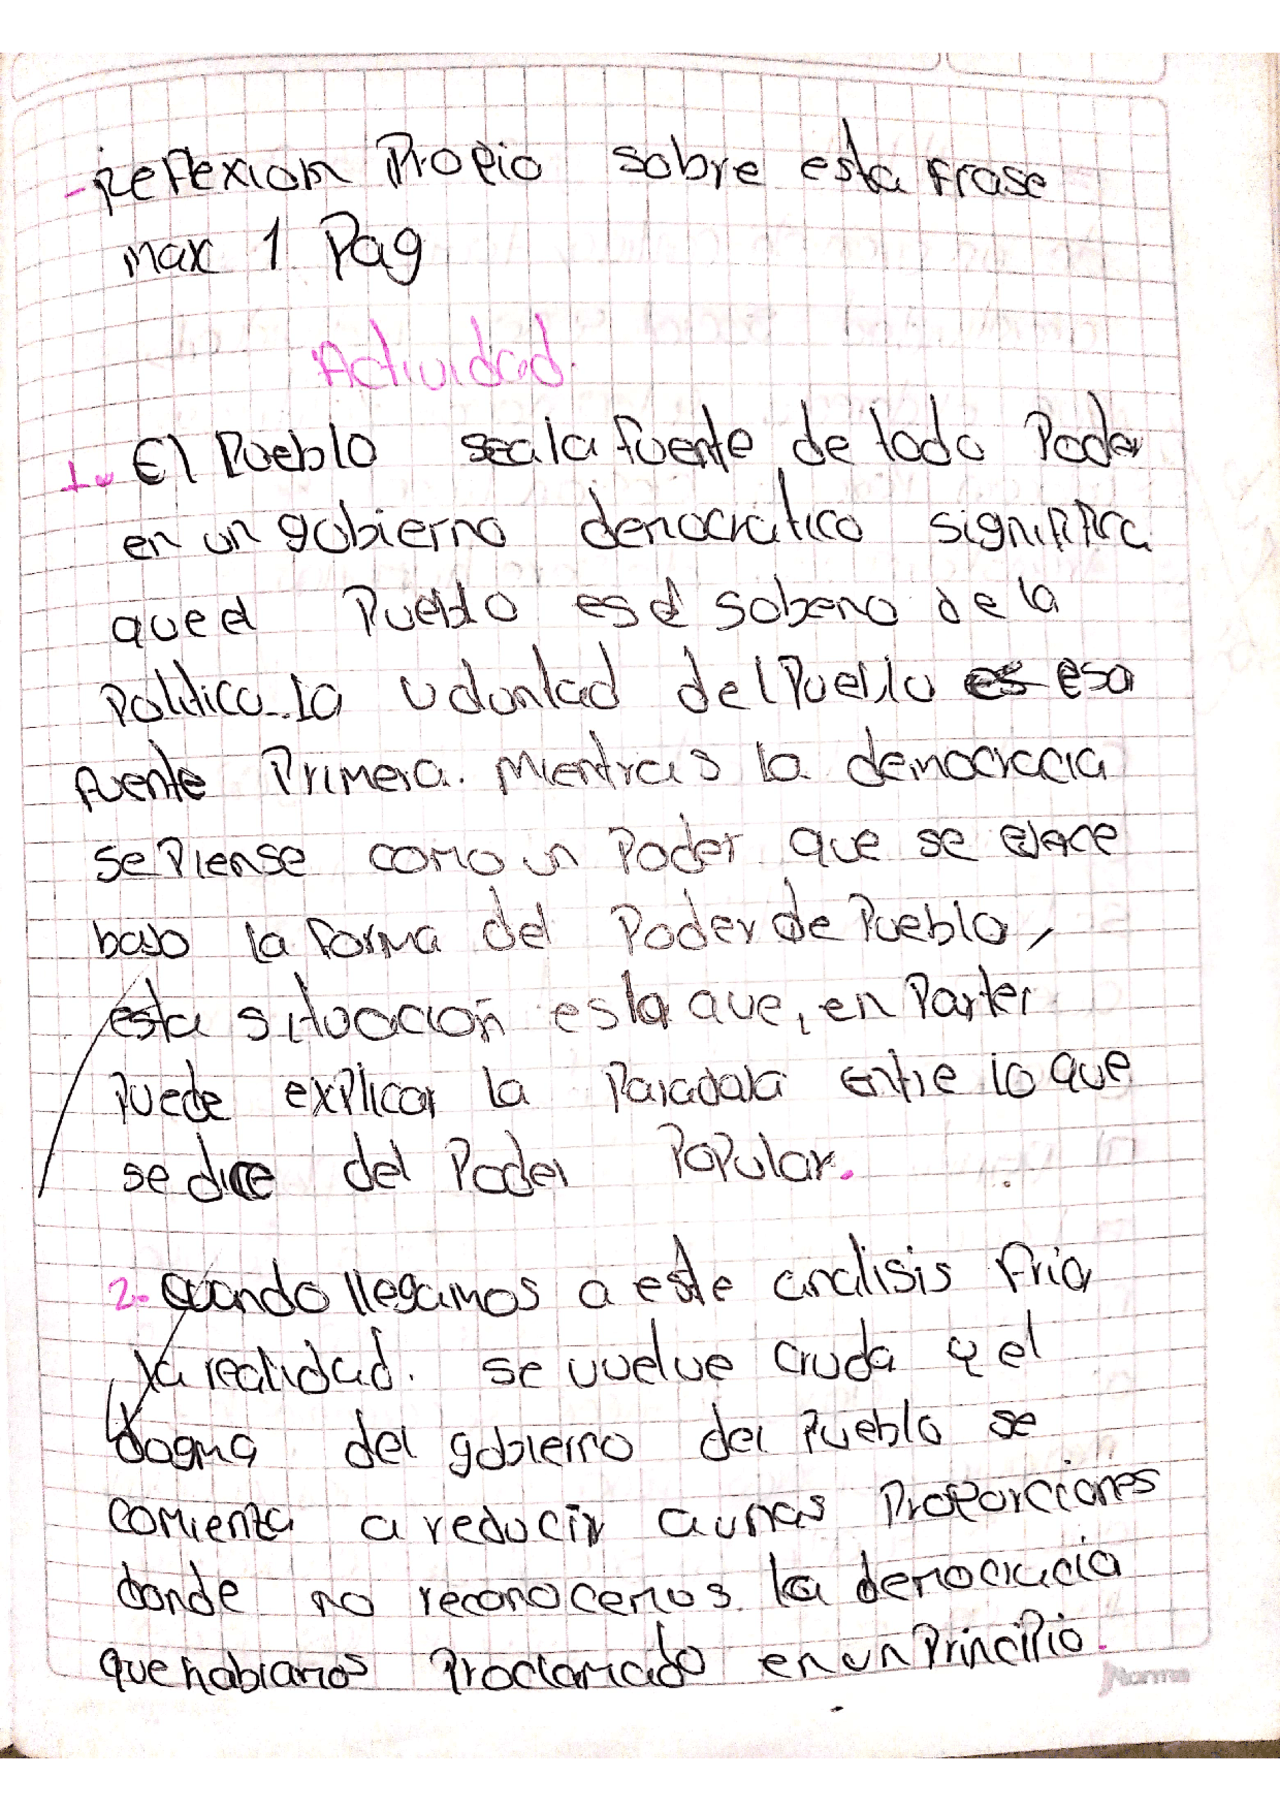 - reflexion Propio sobre esta frase
max 1 Pag
Actividad.
1. El Pueblo sea la fuente de todo Poder
en un gobierno democratico significa
que el Pueblo es el sobeno de la
Politica. la voluntad del Pueblo es esa
fuente Primera. Mientras la democracia
se Piense como un Poder que se ejerce
bajo la forma del Poder de Pueblo,
esta situacion esta que, en Parter
Puede explicar la Paradola entre lo que
se dice del Poder Popular.
2. Cuando llegamos a este analisis fria
la realidad. se vuelve cruda y el
dogma del gobierno del Pueblo se
comienza a reducir a unas Proporciones
donde no reconocemos la democracia
que habiamos Proclamado en un Principio.
Norma